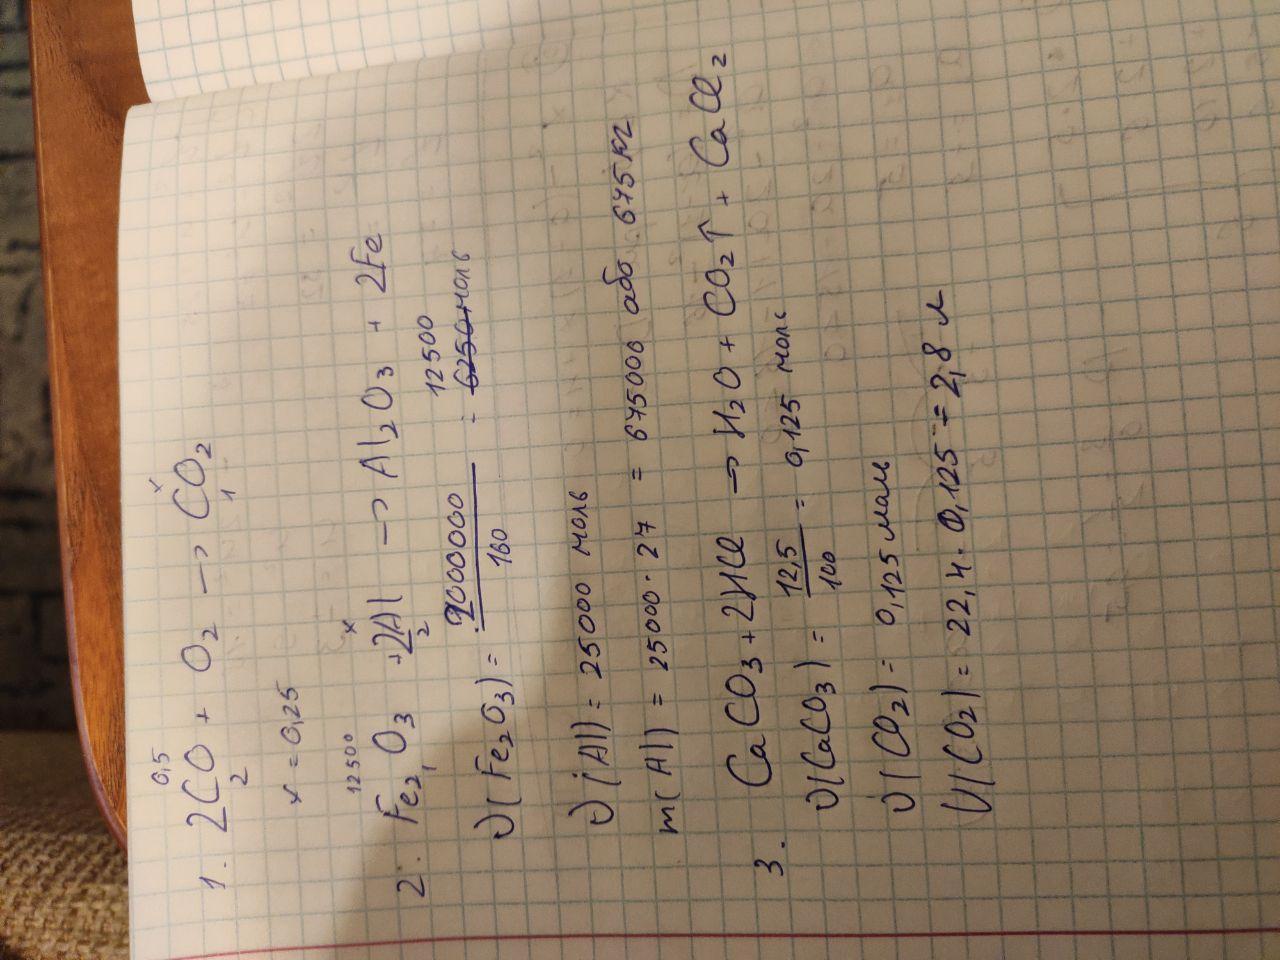 0,5 x
1. 2CO + O₂ → CO₂
2 1
x = 0,25
12500 x
2. Fe₂O₃ + 2Al → Al₂O₃ + 2Fe
1 2
12500
ν(Fe₂O₃) = 2000000/160 = 6250 моль
ν(Al) = 25000 моль
m(Al) = 25000 · 27 = 675000 або 675 кг
3. CaCO₃ + 2HCl → H₂O + CO₂↑ + CaCl₂
ν(CaCO₃) = 12,5/100 = 0,125 моль
ν(CO₂) = 0,125 моль
V(CO₂) = 22,4 · 0,125 = 2,8 л